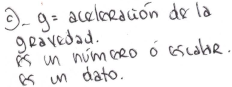 c)_ g = aceleración de la
gravedad.
es un número ó escalar.
es un dato.